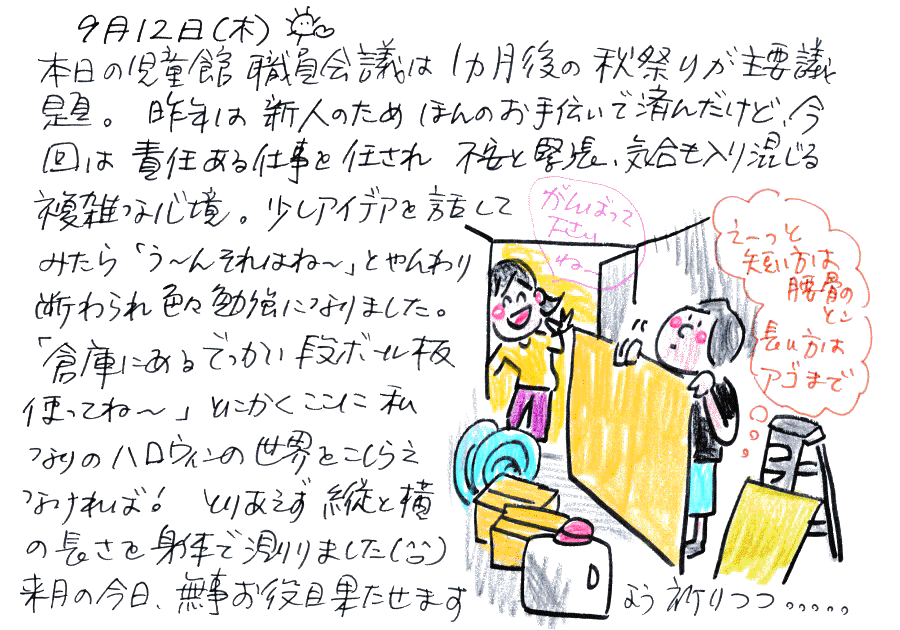 9月12日(木)
本日の児童館 職員会議は 1カ月後の 秋祭りが主要議
題。 昨年は 新人のため ほんのお手伝いで済んだけど、今
回は 責任ある仕事を任され 不安と緊張、気合も入り混じる
複雑な心境。少しアイデアを話して
みたら「う〜んそれはね〜」とやんわり
断わられ 色々勉強になりました。
「倉庫にあるでっかい段ボール板
使ってね〜」とにかくここに私
なりのハロウィンの世界をこしらえ
なければ! とりあえず 縦と横
の長さを身体で測りました(^^;)
来月の今日、無事お役目果たせます よう祈りつつ.....
がんばって
下さい
ね〜
えーっと
短い方は
腰骨の
とこ
長い方は
アゴまで